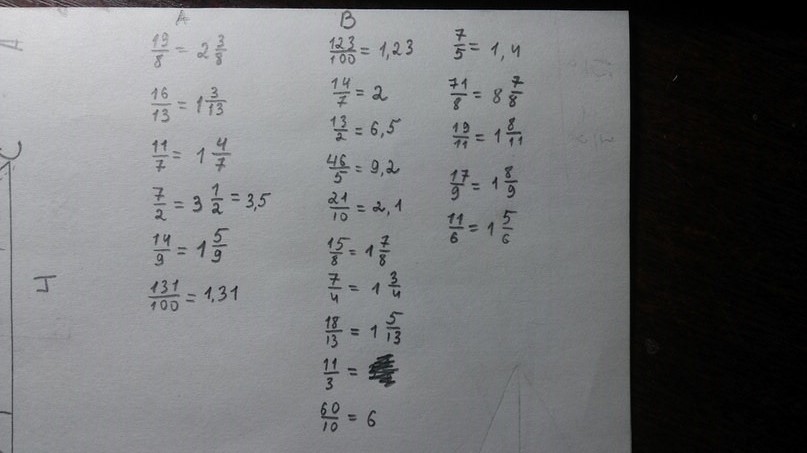 A
19/8 = 2 3/8
16/13 = 1 3/13
11/7 = 1 4/7
7/2 = 3 1/2 = 3,5
14/9 = 1 5/9
131/100 = 1,31
B
123/100 = 1,23
14/7 = 2
13/2 = 6,5
46/5 = 9,2
21/10 = 2,1
15/8 = 1 7/8
7/4 = 1 3/4
18/13 = 1 5/13
11/3 =
60/10 = 6
7/5 = 1,4
71/8 = 8 7/8
19/11 = 1 8/11
17/9 = 1 8/9
11/6 = 1 5/6